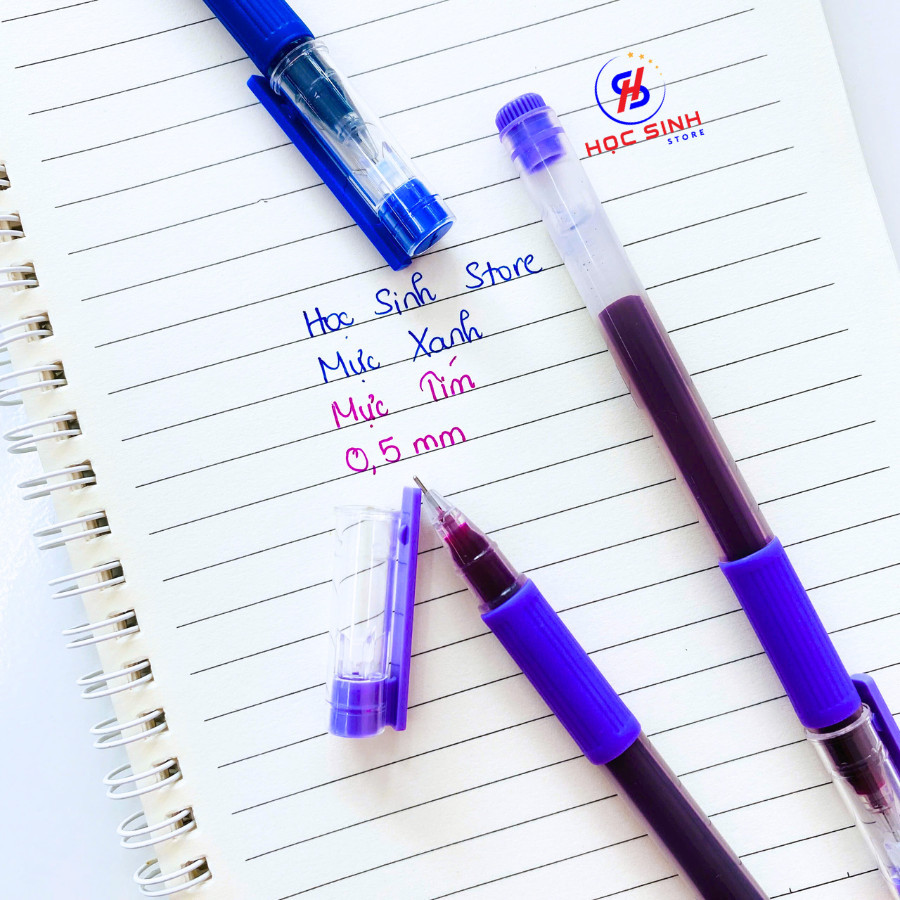 HỌC SINH
STORE
Học Sinh Store
Mực Xanh
Mực Tím
0,5 mm